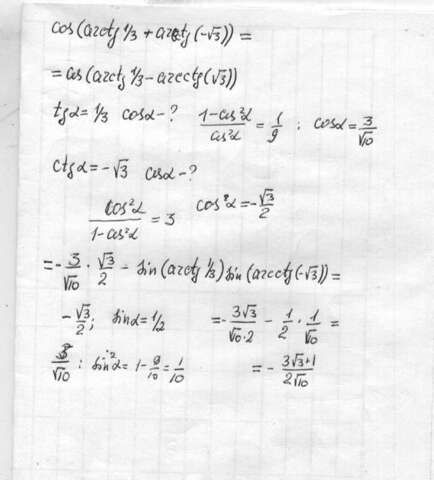 cos(arctg 1/3 + arcctg(-√3)) =
= cos(arctg 1/3 - arcctg(√3))
tgα = 1/3 cosα - ? (1-cos²α)/cos²α = 1/9 : cosα = 3/√10
ctgα = -√3 cosα - ?
cos²α/(1-cos²α) = 3 cos²α = -√3/2
= -3/√10 · √3/2 - sin(arctg 1/3) sin(arcctg(-√3)) =
-√3/2; sinα = 1/2 = -3√3/(√10·2) - 1/2 · 1/√10 =
3/√10 : sin²α = 1 - 9/10 = 1/10 = - (3√3+1)/(2√10)